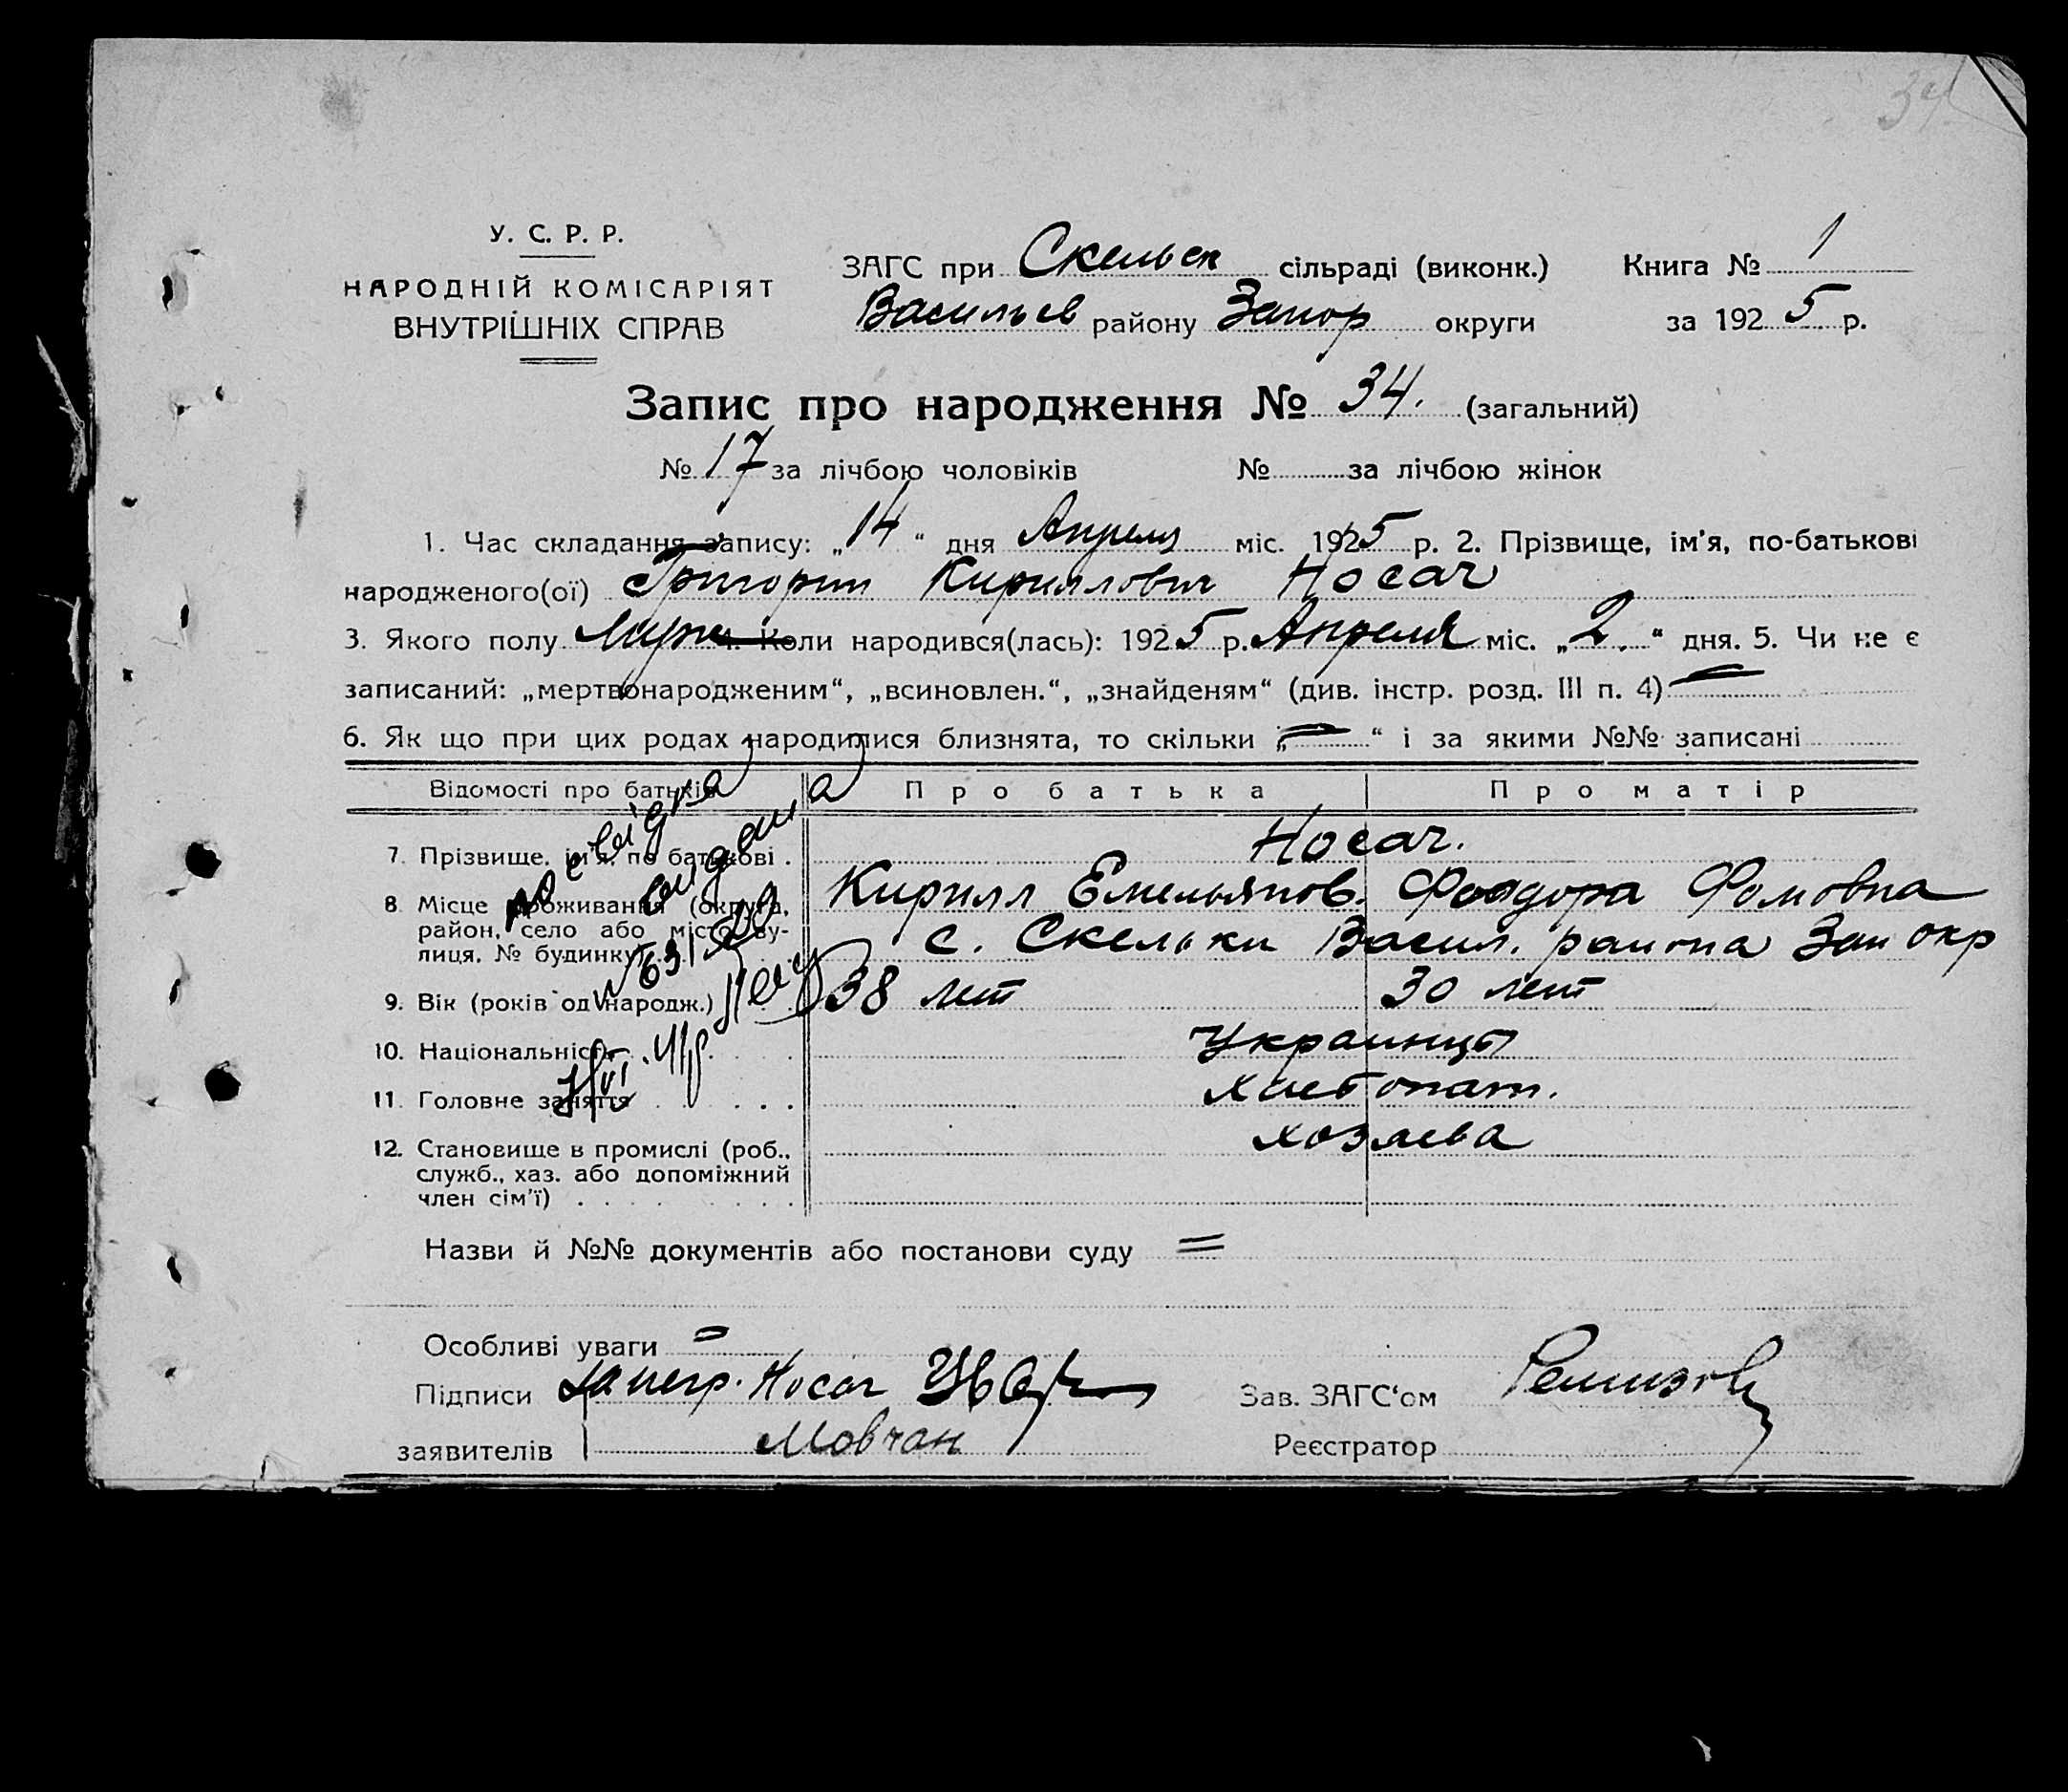 34
У. С. Р. Р.
НАРОДНІЙ КОМІСАРІЯТ
ВНУТРІШНІХ СПРАВ
ЗАГС при Скельск сільраді (виконк.) Книга № 1
Васильев району Запор округи за 1925 р.
Запис про народження № 34. (загальний)
№ 17 за лічбою чоловіків № за лічбою жінок
1. Час складання запису: „14“ дня Апреля міс. 1925 р. 2. Прізвище, ім'я, по-батькові
народженого(ої) Григорий Кириллович Носач
3. Якого полу Муж 4. Коли народився(лась): 1925 р. Апреля міс. „2.“ дня. 5. Чи не є
записаний: „мертвонародженим“, „всиновлен.“, „знайденям“ (див. інстр. розд. III п. 4)
6. Як що при цих родах народилися близнята, то скільки „=“ і за якими №№ записані
Відомості про батьків Про батька Про матір
7. Прізвище, ім'я, по батькові . Носач.
Кирилл Емельянов. Феодора Фомовна
8. Місце проживання (округа,
район, село або місто, ву-
лиця, № будинку) с. Скельки Васил. района Зап окр
9. Вік (років од народж.) 38 лет 30 лет
10. Національність Украинцы
11. Головне заняття хлебопат.
12. Становище в промислі (роб.,
служб., хаз. або допоміжний
член сім'ї) хозяева
Назви й №№ документів або постанови суду =
Особливі уваги =
Підписи за негр. Носач
заявителів Мовчан
Зав. ЗАГС'ом Ремизов
Реєстратор